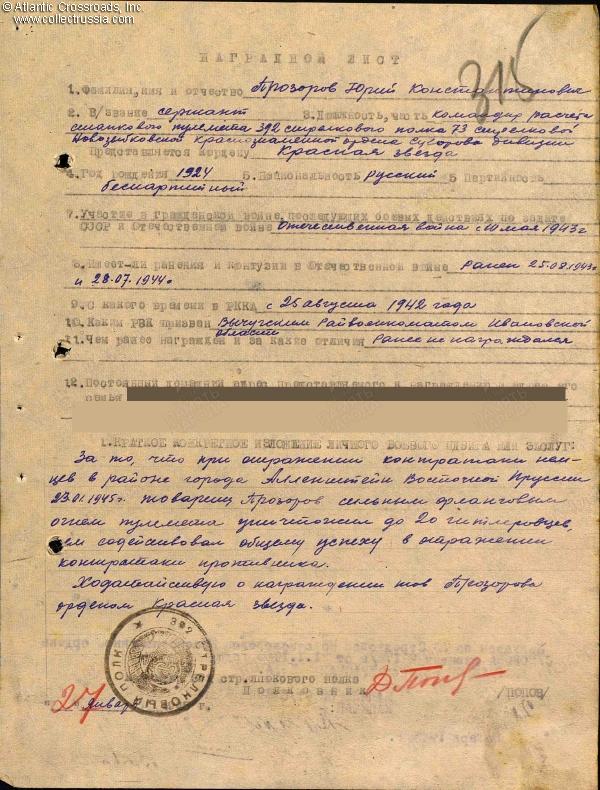 © Atlantic Crossroads, Inc.
www.collectrussia.com
315
НАГРАДНОЙ ЛИСТ
1. Фамилия, имя и отчество Прозоров Юрий Константинович
2. В/звание сержант 3. Должность, часть командир расчета
станкового пулемета 392 стрелкового полка 73 стрелковой
Новозыбковской Краснознаменной ордена Суворова дивизии
Представляется к ордену Красная звезда
4. Год рождения 1924 5. Национальность русский 6 Партийность
беспартийный
7. Участие в гражданской войне, последующих боевых действиях по защите
СССР и Отечественной войне Отечественная война с 10 мая 1943 г
8. Имеет-ли ранения и контузии в Отечественной войне Ранен 25.08.1943г
и 28.07.1944г
9. С какого времени в РККА с 25 августа 1942 года
10. Каким РВК призван Вычугским Райвоенкоматом Ивановской
области
11. Чем ранее награжден и за какие отличия Ранее не награждался
12. Постоянный домашний адрес представляемого к награждению и адрес его
семьи
1. КРАТКОЕ КОНКРЕТНОЕ ИЗЛОЖЕНИЕ ЛИЧНОГО БОЕВОГО ПОДВИГА ИЛИ ЗАСЛУГ:
За то, что при отражении контратаки нем-
цев в районе города Алленштейн Восточной Пруссии
23.01.1945г. товарищ Прозоров сильным фланговым
огнем пулемета уничтожил до 20 гитлеровцев,
чем содействовал общему успеху в отражении
контратаки противника.
Ходатайствую о награждении тов Прозорова
орденом Красная звезда.
392 СТРЕЛКОВЫЙ ПОЛК
стрелкового полка
Полковник /ПОПОВ/
27 января г.